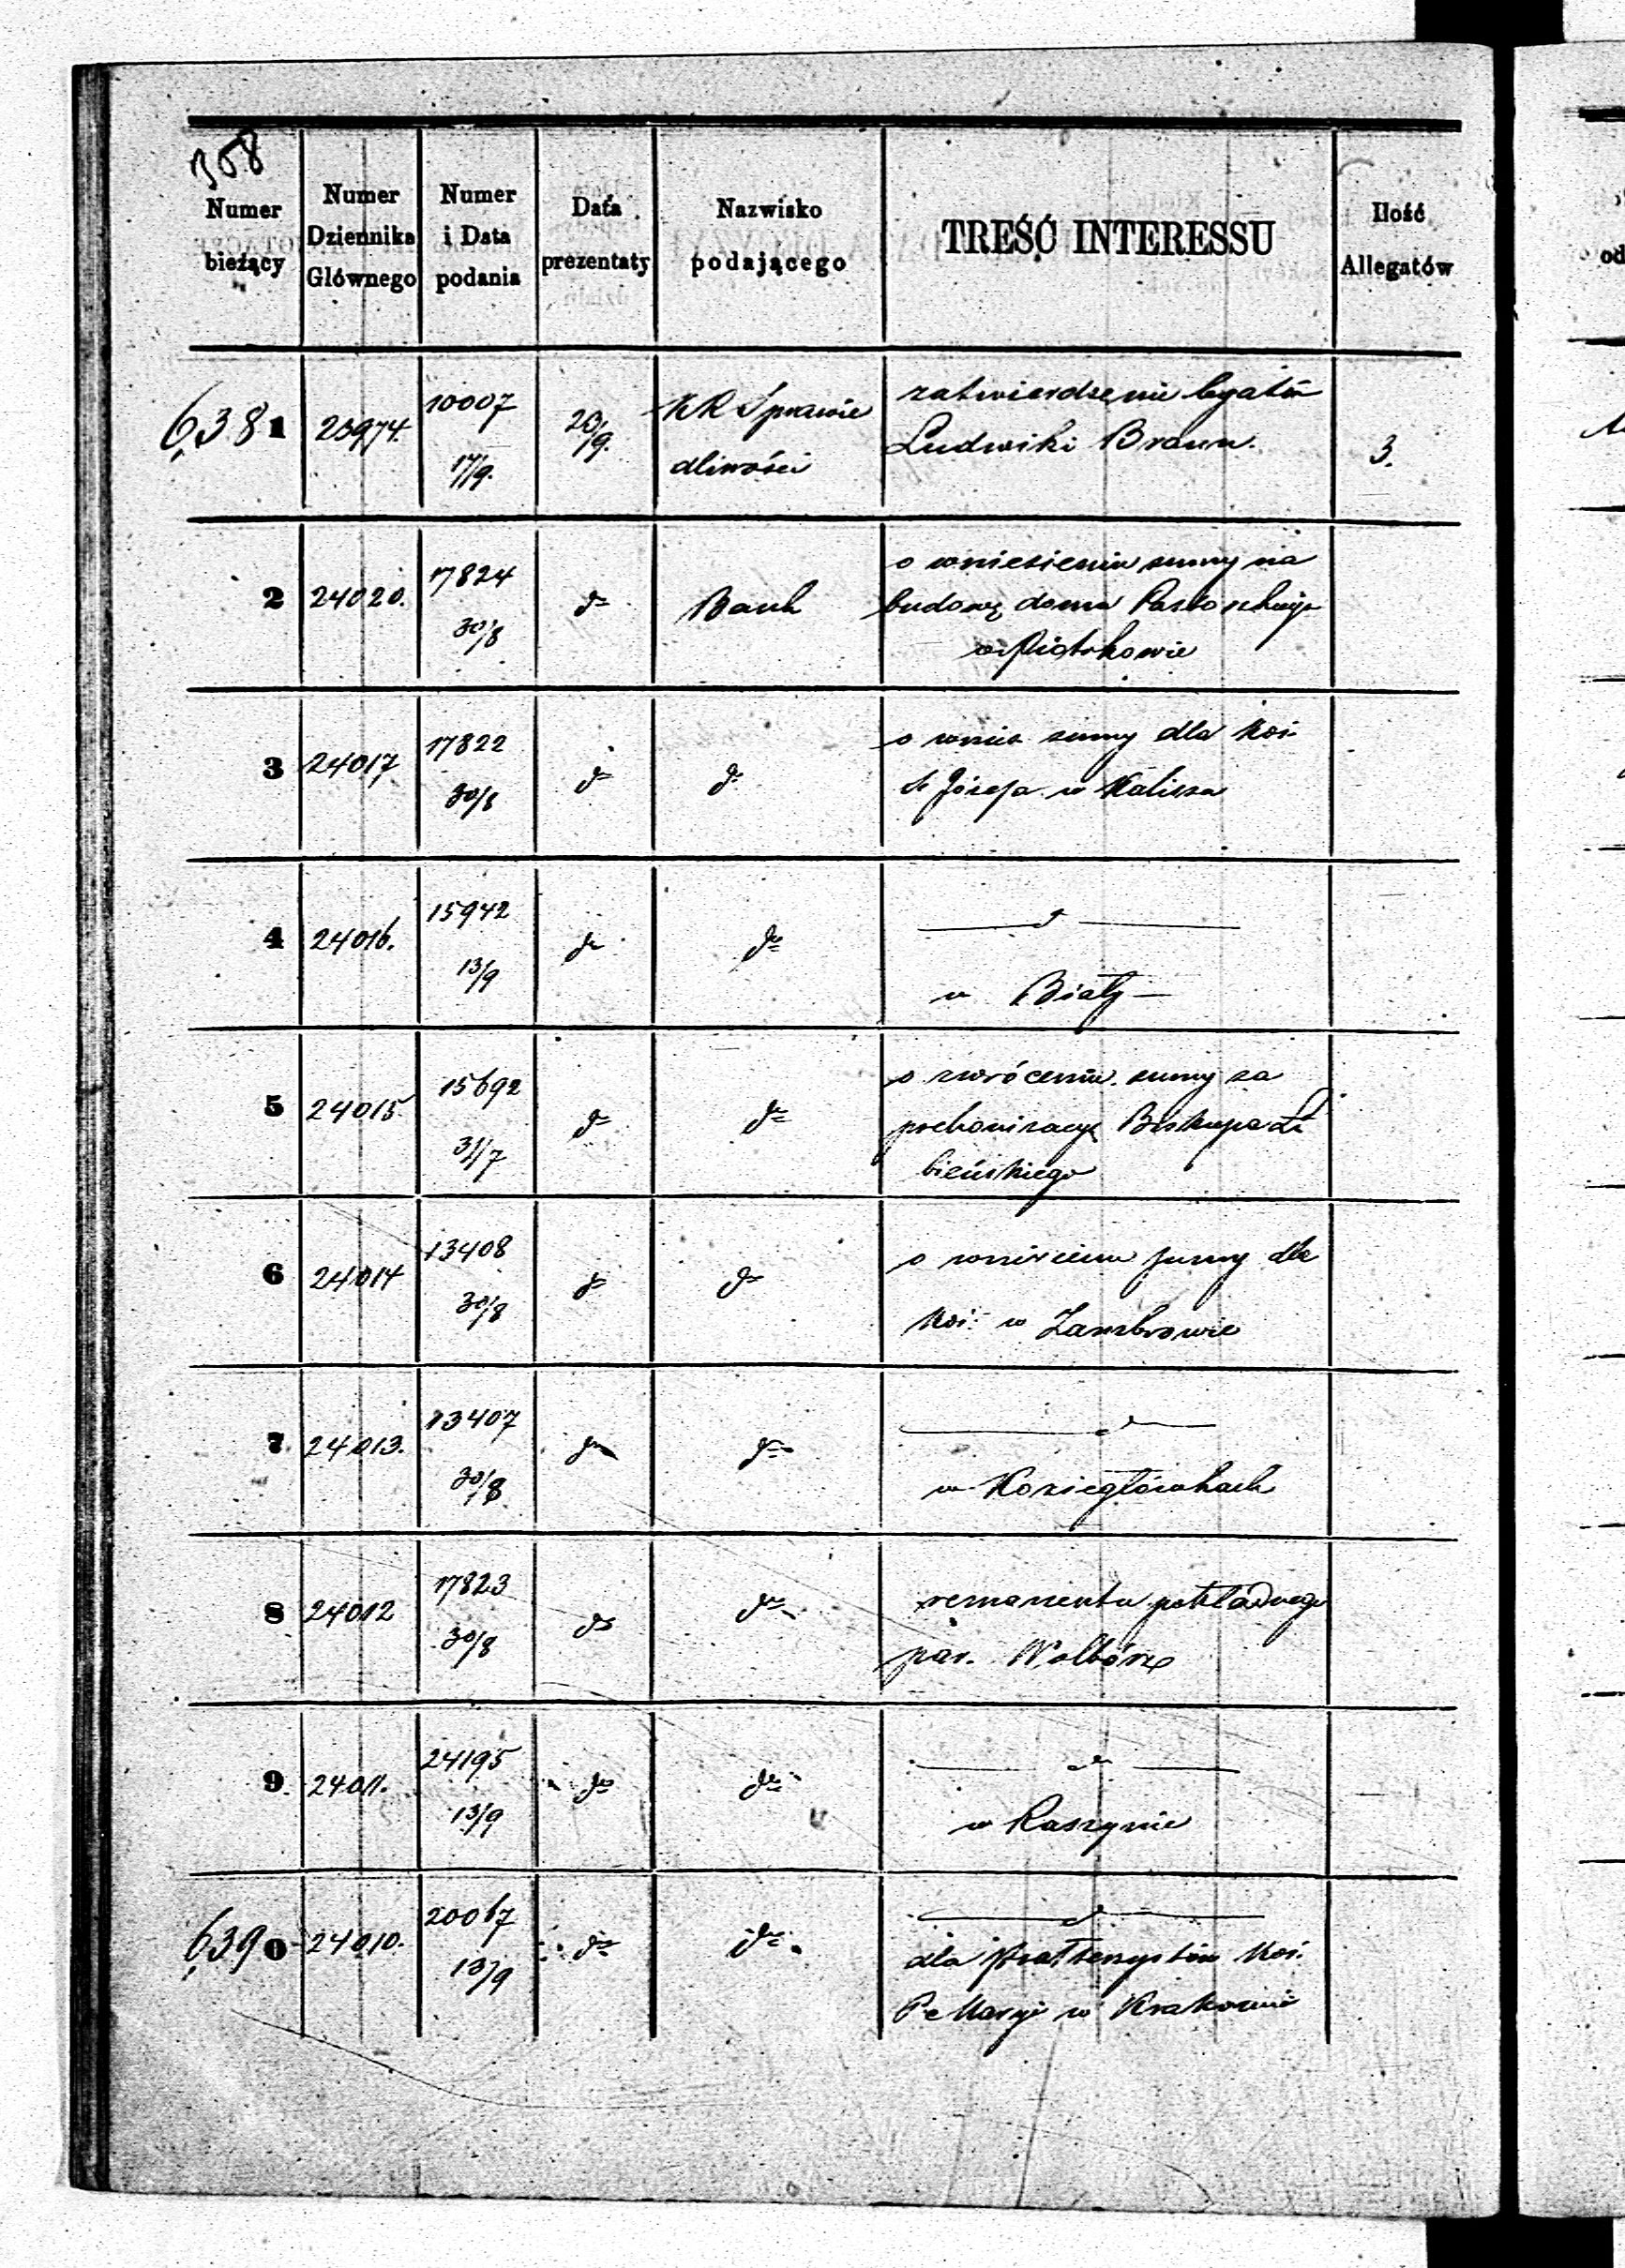 308
Numer bieżący
Numer Dziennika Głównego
Numer i Data podania
Data prezentaty
Nazwisko podającego
TREŚĆ INTERESSU
Ilość Allegatów
6381 23974. 10007 17/9. 20/9. KR Sprawie zatwierdzenie legatów 3.
dliwości Ludwiki Braun.
2 24020. 17824 30/8 do Bank o wniesieniu sumy na
budowę domu Pastorskiego
w Piotrkowie
3 24017 17822 30/8 do do o wnies sumy dla Koś.
S Józefa w Kaliszu
4 24016. 15942 13/9 do do d
w Biały
5 24015 15692 31/7 do do o zwróceniu sumy za
prekonizacyę Biskupa Łu
bieńskiego
6 24014 13408 30/8 do do o wniesieniu sumy dla
Koś. w Zambrowie
7 24013. 13407 30/8 do do d
w Koziegłówkach
8 24012 17823 30/8 do do remanentu pokładnego
par. Wolbórz
9 24011. 24195 13/9 do do d
w Raszynie
6390 24010. 20067 13/9 do do d
dla Koś.
P. Maryi w Krakowie